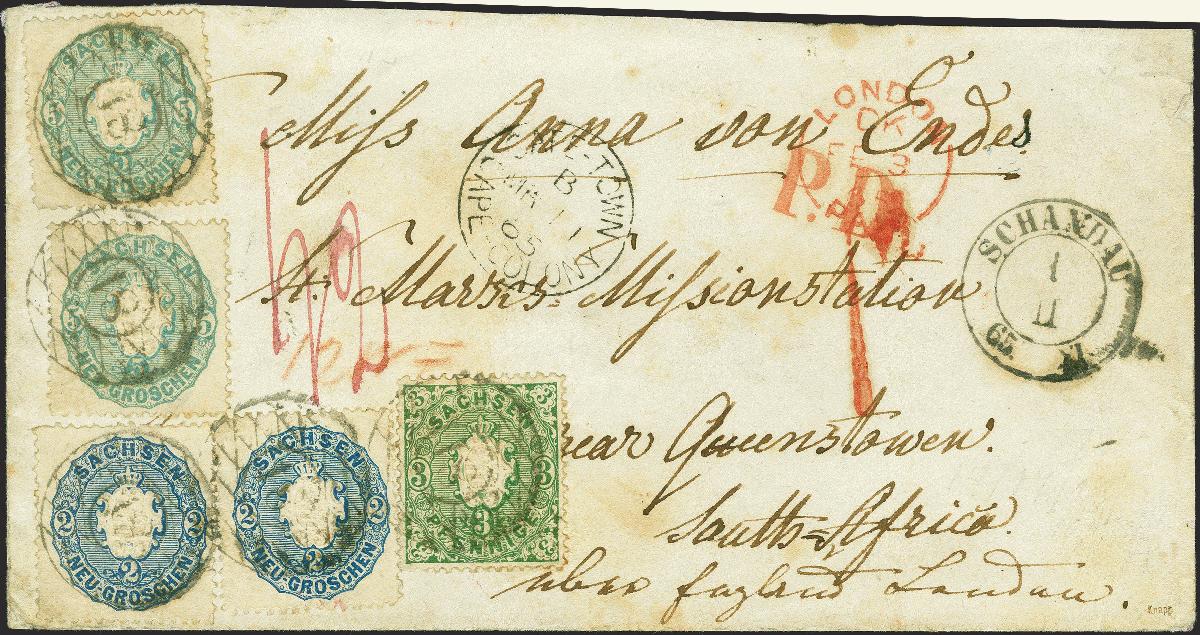 SACHSEN
5 5
5
NEU-GROSCHEN
SACHSEN
5 5
5
NEU-GROSCHEN
SACHSEN
2 2
2
NEU-GROSCHEN
SACHSEN
2 2
2
NEU-GROSCHEN
SACHSEN
3 3
3
PFENNIGE
Miss Anna von Endes
St. Marks Missionstation
near Queenstowen.
South-Africa.
über England London.
TOWN
B
MR
65
CAPE-COLONY
LONDON
DK
FE 3
PAID
P.D.
SCHANDAU
1
II
65 XI
Knapp